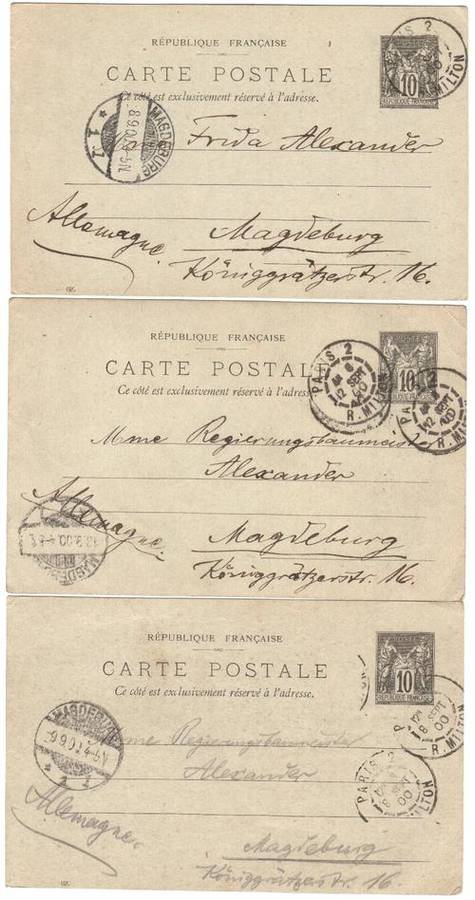 RÉPUBLIQUE FRANÇAISE
CARTE POSTALE
Ce côté est exclusivement réservé à l'adresse.
10
PARIS 2
R. MILTON
MAGDEBURG
Mme Frida Alexander
Allemagne.
Magdeburg
Königgrätzerstr. 16.
RÉPUBLIQUE FRANÇAISE
CARTE POSTALE
Ce côté est exclusivement réservé à l'adresse.
10
PARIS 2
12 SEPT
R. MILTON
12 SEPT
Mme Regierungsbaumeister
Alexander
Allemagne.
MAGDEBURG
Magdeburg
Königgrätzerstr. 16.
RÉPUBLIQUE FRANÇAISE
CARTE POSTALE
Ce côté est exclusivement réservé à l'adresse.
10
8 SEPT
00
R. MILTON
MAGDEBURG
Mme Regierungsbaumeister
Alexander
PARIS 2
MILTON
Allemagne.
Magdeburg
Königgrätzerstr. 16.